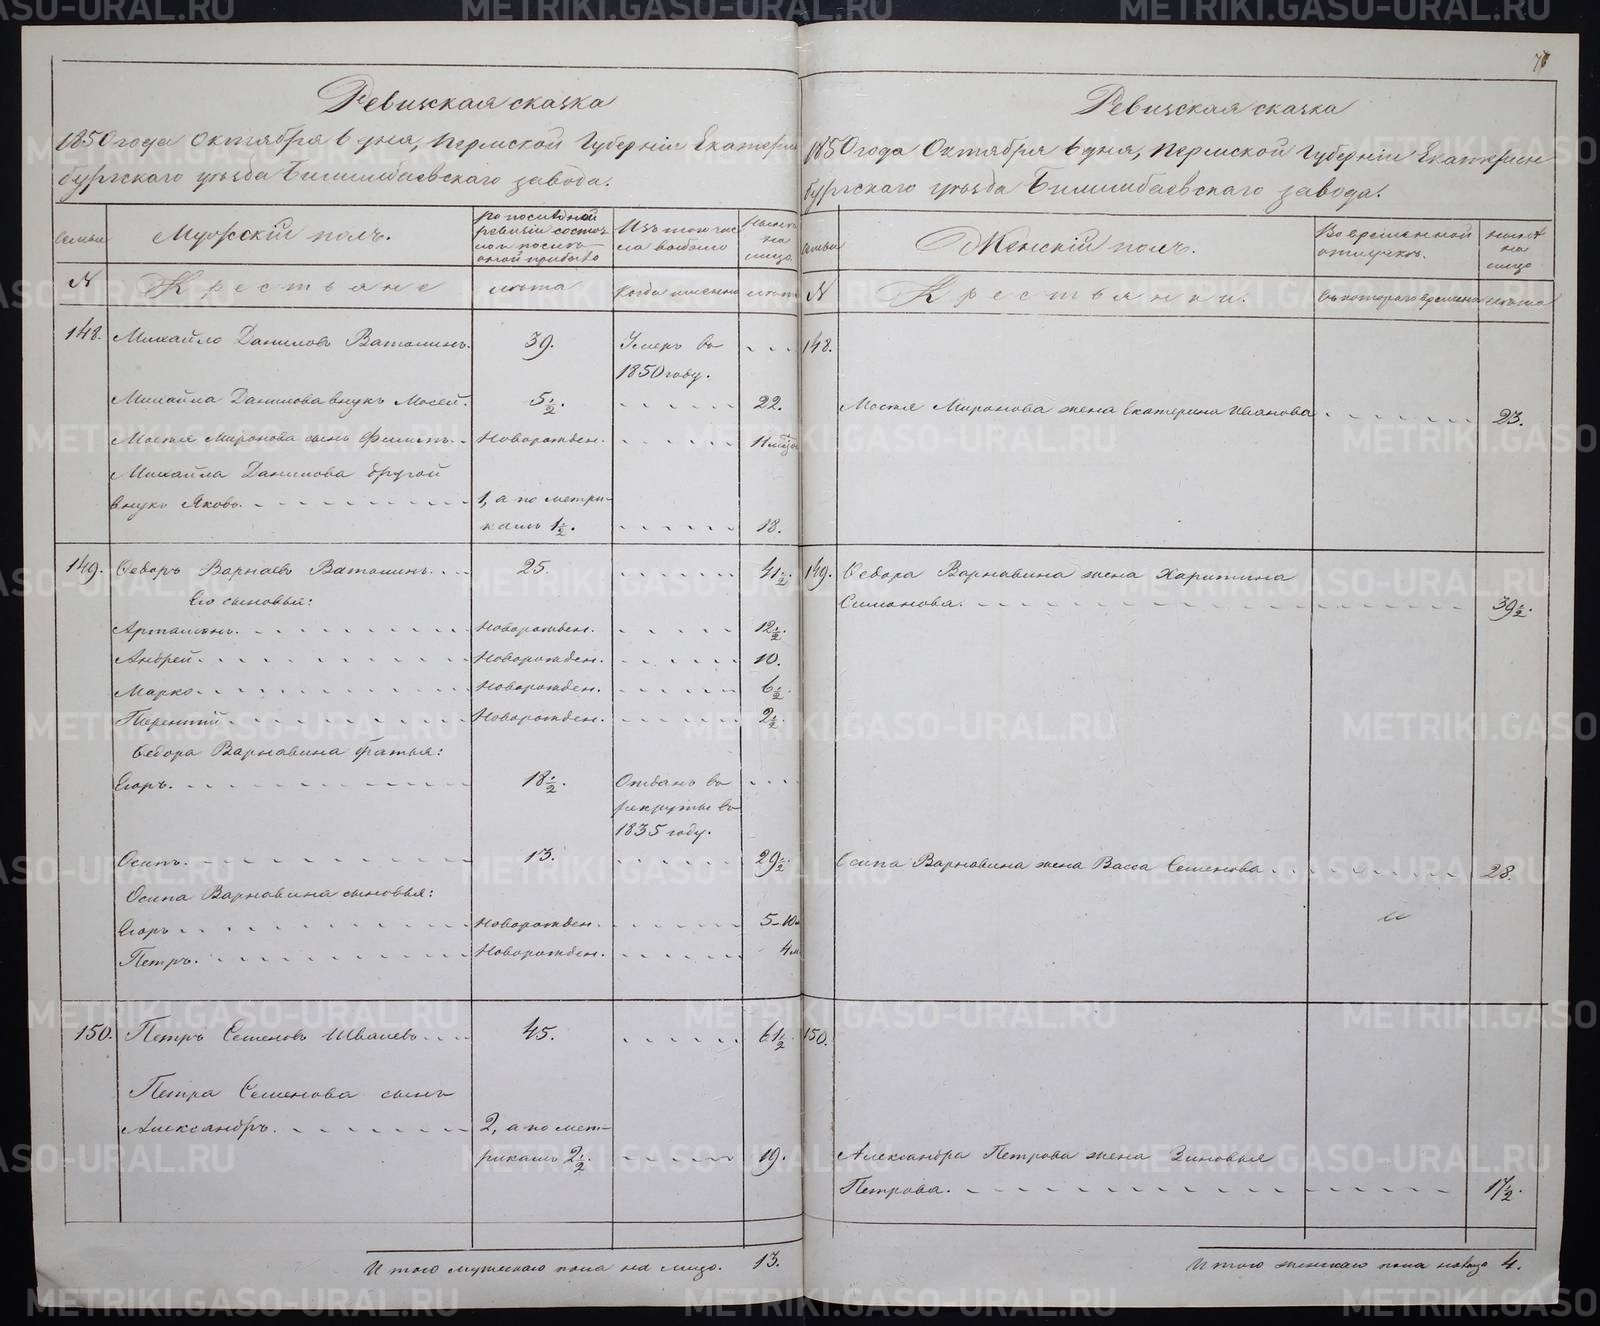 76
Ревизская сказка
1850 года Октября 6 дня, Пермской Губерніи Екатерин
бургскаго уѣзда Билимбаевскаго завода.
Семьи
Мужскій полъ.
По последней ревизіи состояло и после оной прибыло
Изъ того числа выбыло
Ныне на лицо.
N
Крестьяне
лѣта
Когда именно
лѣта
148. Михайло Даниловъ Ватолинъ. 39. Умеръ въ
1850 году.
Михайла Данилова внукъ Мосей. 5½. 22.
Мосея Миронова сынъ Филипъ. Новорожден. 11 мѣся
Михайла Данилова другой
внукъ Яковъ. 1, а по метри-
камъ 1½. 18.
149. Ѳедоръ Варнаевъ Ватолинъ. 25. 41½.
Его сыновья:
Артамонъ. Новорожден. 12½.
Андрей. Новорожден. 10.
Марко. Новорожден. 6½.
Терентій. Новорожден. 2½.
Ѳедора Варнавина братья:
Егоръ. 18½. Отданъ въ
рекруты въ
1835 году.
Осипъ. 13. 29½.
Осипа Варнавина сыновья:
Егоръ Новорожден. 5-10м
Петръ. Новорожден. 4м
150. Петръ Семеновъ Швалевъ 45. 61½
Петра Семенова сынъ
Александръ. 2, а по мет-
рикамъ 2½. 19.
Итого мужескаго пола на лицо. 13.
Ревизская сказка
1850 года Октября 6 дня, Пермской Губерніи Екатерин
бургскаго уѣзда Билимбаевскаго завода.
Семьи
Женскій полъ.
Во временной отлучкѣ.
ныне на лицо
N
Крестьянки.
Съ котораго времени
лѣта
148.
Мосея Миронова жена Екатерина Иванова 23.
149. Ѳедора Варнавина жена Харитина
Симонова. 39½.
Осипа Варнавина жена Васса Семенова 28.
150.
Александра Петрова жена Зиновья
Петрова. 17½.
Итого женскаго пола на лицо 4.
METRIKI.GASO-URAL.RU